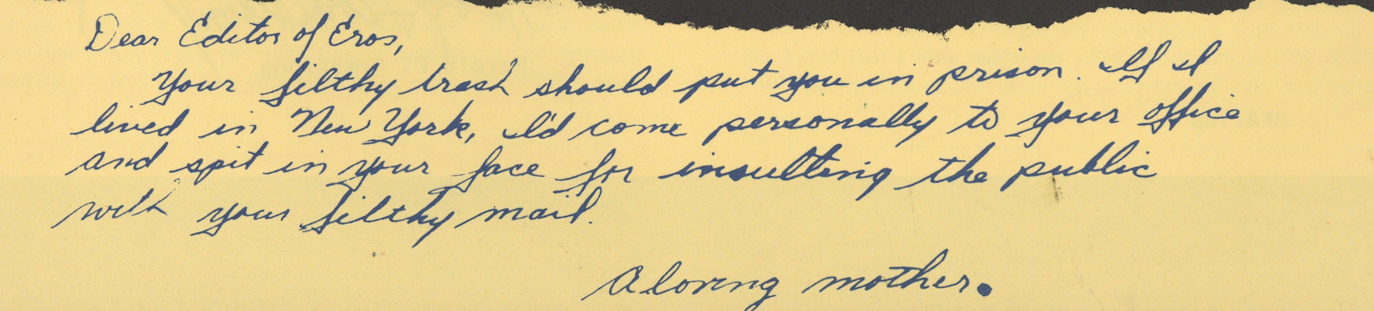 Dear Editor of Eros,
Your filthy trash should put you in prison. If I
lived in New York, I'd come personally to your office
and spit in your face for insulting the public
with your filthy mail.
A loving mother.